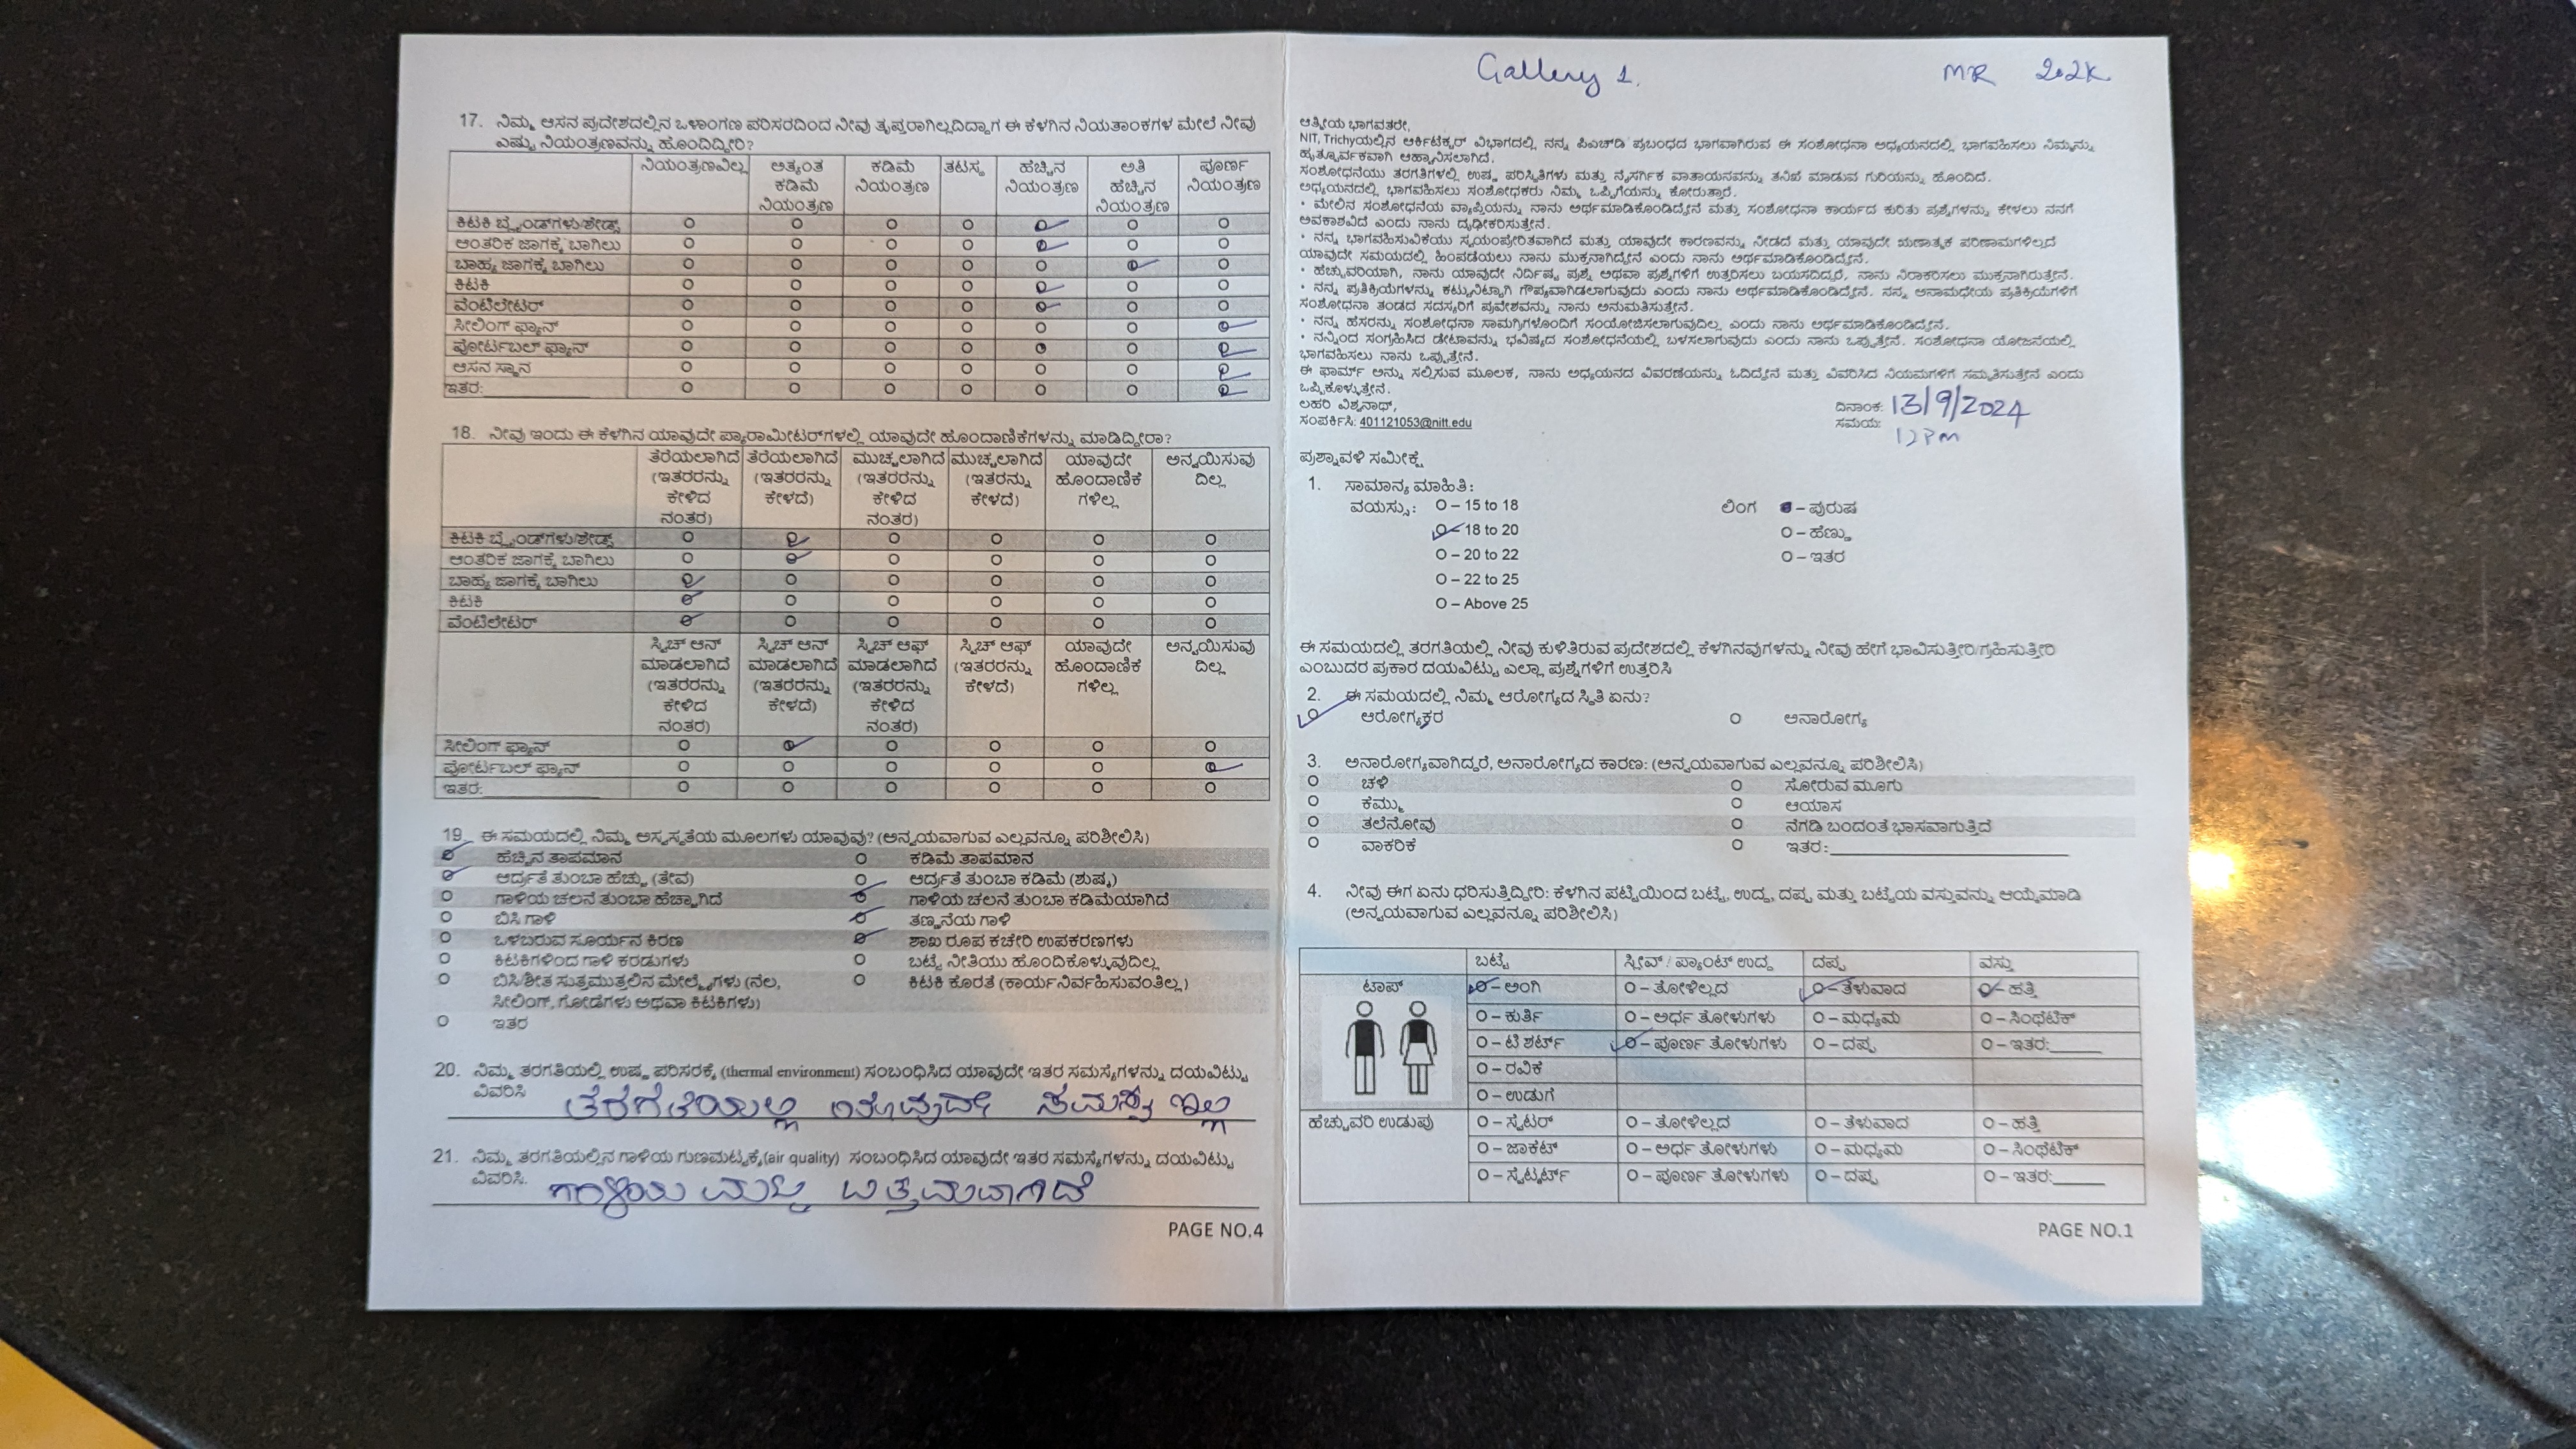 17. ನಿಮ್ಮ ಆಸನ ಪ್ರದೇಶದಲ್ಲಿನ ಒಳಾಂಗಣ ಪರಿಸರದಿಂದ ನೀವು ತೃಪ್ತರಾಗಿಲ್ಲದಿದ್ದಾಗ ಈ ಕೆಳಗಿನ ನಿಯತಾಂಕಗಳ ಮೇಲೆ ನೀವು
ಎಷ್ಟು ನಿಯಂತ್ರಣವನ್ನು ಹೊಂದಿದ್ದೀರಿ?
ನಿಯಂತ್ರಣವಿಲ್ಲ ಅತ್ಯಂತ ಕಡಿಮೆ ನಿಯಂತ್ರಣ ಕಡಿಮೆ ನಿಯಂತ್ರಣ ತಟಸ್ಥ ಹೆಚ್ಚಿನ ನಿಯಂತ್ರಣ ಅತಿ ಹೆಚ್ಚಿನ ನಿಯಂತ್ರಣ ಪೂರ್ಣ ನಿಯಂತ್ರಣ
ಕಿಟಕಿ ಬ್ಲೈಂಡ್‌ಗಳು/ಶೇಡ್ಸ್
ಆಂತರಿಕ ಜಾಗಕ್ಕೆ ಬಾಗಿಲು
ಬಾಹ್ಯ ಜಾಗಕ್ಕೆ ಬಾಗಿಲು
ಕಿಟಕಿ
ವೆಂಟಿಲೇಟರ್
ಸೀಲಿಂಗ್ ಫ್ಯಾನ್
ಪೋರ್ಟಬಲ್ ಫ್ಯಾನ್
ಆಸನ ಸ್ಥಾನ
ಇತರ:
18. ನೀವು ಇಂದು ಈ ಕೆಳಗಿನ ಯಾವುದೇ ಪ್ಯಾರಾಮೀಟರ್‌ಗಳಲ್ಲಿ ಯಾವುದೇ ಹೊಂದಾಣಿಕೆಗಳನ್ನು ಮಾಡಿದ್ದೀರಾ?
ತೆರೆಯಲಾಗಿದೆ (ಇತರರನ್ನು ಕೇಳಿದ ನಂತರ) ತೆರೆಯಲಾಗಿದೆ (ಇತರರನ್ನು ಕೇಳದೆ) ಮುಚ್ಚಲಾಗಿದೆ (ಇತರರನ್ನು ಕೇಳಿದ ನಂತರ) ಮುಚ್ಚಲಾಗಿದೆ (ಇತರನ್ನು ಕೇಳದೆ) ಯಾವುದೇ ಹೊಂದಾಣಿಕೆ ಗಳಿಲ್ಲ ಅನ್ವಯಿಸುವು ದಿಲ್ಲ
ಕಿಟಕಿ ಬ್ಲೈಂಡ್‌ಗಳು/ಶೇಡ್ಸ್
ಆಂತರಿಕ ಜಾಗಕ್ಕೆ ಬಾಗಿಲು
ಬಾಹ್ಯ ಜಾಗಕ್ಕೆ ಬಾಗಿಲು
ಕಿಟಕಿ
ವೆಂಟಿಲೇಟರ್
ಸ್ವಿಚ್ ಆನ್ ಮಾಡಲಾಗಿದೆ (ಇತರರನ್ನು ಕೇಳಿದ ನಂತರ) ಸ್ವಿಚ್ ಆನ್ ಮಾಡಲಾಗಿದೆ (ಇತರರನ್ನು ಕೇಳದೆ) ಸ್ವಿಚ್ ಆಫ್ ಮಾಡಲಾಗಿದೆ (ಇತರರನ್ನು ಕೇಳಿದ ನಂತರ) ಸ್ವಿಚ್ ಆಫ್ (ಇತರರನ್ನು ಕೇಳದೆ) ಯಾವುದೇ ಹೊಂದಾಣಿಕೆ ಗಳಿಲ್ಲ ಅನ್ವಯಿಸುವು ದಿಲ್ಲ
ಸೀಲಿಂಗ್ ಫ್ಯಾನ್
ಪೋರ್ಟಬಲ್ ಫ್ಯಾನ್
ಇತರ:
19. ಈ ಸಮಯದಲ್ಲಿ ನಿಮ್ಮ ಅಸ್ವಸ್ಥತೆಯ ಮೂಲಗಳು ಯಾವುವು? (ಅನ್ವಯವಾಗುವ ಎಲ್ಲವನ್ನೂ ಪರಿಶೀಲಿಸಿ)
ಹೆಚ್ಚಿನ ತಾಪಮಾನ ಕಡಿಮೆ ತಾಪಮಾನ
ಆರ್ದ್ರತೆ ತುಂಬಾ ಹೆಚ್ಚು (ತೇವ) ಆರ್ದ್ರತೆ ತುಂಬಾ ಕಡಿಮೆ (ಶುಷ್ಕ)
ಗಾಳಿಯ ಚಲನೆ ತುಂಬಾ ಹೆಚ್ಚಾಗಿದೆ ಗಾಳಿಯ ಚಲನೆ ತುಂಬಾ ಕಡಿಮೆಯಾಗಿದೆ
ಬಿಸಿ ಗಾಳಿ ತಣ್ಣನೆಯ ಗಾಳಿ
ಒಳಬರುವ ಸೂರ್ಯನ ಕಿರಣ ಶಾಖ ರೂಪ ಕಚೇರಿ ಉಪಕರಣಗಳು
ಕಿಟಕಿಗಳಿಂದ ಗಾಳಿ ಕರಡುಗಳು ಬಟ್ಟೆ ನೀತಿಯು ಹೊಂದಿಕೊಳ್ಳುವುದಿಲ್ಲ
ಬಿಸಿ/ಶೀತ ಸುತ್ತಮುತ್ತಲಿನ ಮೇಲ್ಮೈಗಳು (ನೆಲ, ಕಿಟಕಿ ಕೊರತೆ (ಕಾರ್ಯನಿರ್ವಹಿಸುವಂತಿಲ್ಲ)
ಸೀಲಿಂಗ್, ಗೋಡೆಗಳು ಅಥವಾ ಕಿಟಕಿಗಳು)
ಇತರ
20. ನಿಮ್ಮ ತರಗತಿಯಲ್ಲಿ ಉಷ್ಣ ಪರಿಸರಕ್ಕೆ (thermal environment) ಸಂಬಂಧಿಸಿದ ಯಾವುದೇ ಇತರ ಸಮಸ್ಯೆಗಳನ್ನು ದಯವಿಟ್ಟು
ವಿವರಿಸಿ ತರಗತಿಯಲ್ಲಿ ಯಾವುದೇ ಸಮಸ್ಯೆ ಇಲ್ಲ
21. ನಿಮ್ಮ ತರಗತಿಯಲ್ಲಿನ ಗಾಳಿಯ ಗುಣಮಟ್ಟಕ್ಕೆ(air quality) ಸಂಬಂಧಿಸಿದ ಯಾವುದೇ ಇತರ ಸಮಸ್ಯೆಗಳನ್ನು ದಯವಿಟ್ಟು
ವಿವರಿಸಿ. ಗಾಳಿಯ ಉತ್ತಮವಾಗಿದೆ
PAGE NO.4
Gallery 1. MR 202K
ಆತ್ಮೀಯ ಭಾಗವತರೇ,
NIT, Trichyಯಲ್ಲಿನ ಆರ್ಕಿಟೆಕ್ಚರ್ ವಿಭಾಗದಲ್ಲಿ ನನ್ನ ಪಿಎಚ್‌ಡಿ ಪ್ರಬಂಧದ ಭಾಗವಾಗಿರುವ ಈ ಸಂಶೋಧನಾ ಅಧ್ಯಯನದಲ್ಲಿ ಭಾಗವಹಿಸಲು ನಿಮ್ಮನ್ನು
ಹೃತ್ಪೂರ್ವಕವಾಗಿ ಆಹ್ವಾನಿಸಲಾಗಿದೆ.
ಸಂಶೋಧನೆಯು ತರಗತಿಗಳಲ್ಲಿ ಉಷ್ಣ ಪರಿಸ್ಥಿತಿಗಳು ಮತ್ತು ನೈಸರ್ಗಿಕ ವಾತಾಯನವನ್ನು ತನಿಖೆ ಮಾಡುವ ಗುರಿಯನ್ನು ಹೊಂದಿದೆ.
ಅಧ್ಯಯನದಲ್ಲಿ ಭಾಗವಹಿಸಲು ಸಂಶೋಧಕರು ನಿಮ್ಮ ಒಪ್ಪಿಗೆಯನ್ನು ಕೋರುತ್ತಾರೆ.
• ಮೇಲಿನ ಸಂಶೋಧನೆಯ ವ್ಯಾಪ್ತಿಯನ್ನು ನಾನು ಅರ್ಥಮಾಡಿಕೊಂಡಿದ್ದೇನೆ ಮತ್ತು ಸಂಶೋಧನಾ ಕಾರ್ಯದ ಕುರಿತು ಪ್ರಶ್ನೆಗಳನ್ನು ಕೇಳಲು ನನಗೆ
ಅವಕಾಶವಿದೆ ಎಂದು ನಾನು ದೃಢೀಕರಿಸುತ್ತೇನೆ.
• ನನ್ನ ಭಾಗವಹಿಸುವಿಕೆಯು ಸ್ವಯಂಪ್ರೇರಿತವಾಗಿದೆ ಮತ್ತು ಯಾವುದೇ ಕಾರಣವನ್ನು ನೀಡದೆ ಮತ್ತು ಯಾವುದೇ ಋಣಾತ್ಮಕ ಪರಿಣಾಮಗಳಿಲ್ಲದೆ
ಯಾವುದೇ ಸಮಯದಲ್ಲಿ ಹಿಂಪಡೆಯಲು ನಾನು ಮುಕ್ತನಾಗಿದ್ದೇನೆ ಎಂದು ನಾನು ಅರ್ಥಮಾಡಿಕೊಂಡಿದ್ದೇನೆ.
• ಹೆಚ್ಚುವರಿಯಾಗಿ, ನಾನು ಯಾವುದೇ ನಿರ್ದಿಷ್ಟ ಪ್ರಶ್ನೆ ಅಥವಾ ಪ್ರಶ್ನೆಗಳಿಗೆ ಉತ್ತರಿಸಲು ಬಯಸದಿದ್ದರೆ, ನಾನು ನಿರಾಕರಿಸಲು ಮುಕ್ತನಾಗಿರುತ್ತೇನೆ.
• ನನ್ನ ಪ್ರತಿಕ್ರಿಯೆಗಳನ್ನು ಕಟ್ಟುನಿಟ್ಟಾಗಿ ಗೌಪ್ಯವಾಗಿಡಲಾಗುವುದು ಎಂದು ನಾನು ಅರ್ಥಮಾಡಿಕೊಂಡಿದ್ದೇನೆ. ನನ್ನ ಅನಾಮಧೇಯ ಪ್ರತಿಕ್ರಿಯೆಗಳಿಗೆ
ಸಂಶೋಧನಾ ತಂಡದ ಸದಸ್ಯರಿಗೆ ಪ್ರವೇಶವನ್ನು ನಾನು ಅನುಮತಿಸುತ್ತೇನೆ.
• ನನ್ನ ಹೆಸರನ್ನು ಸಂಶೋಧನಾ ಸಾಮಗ್ರಿಗಳೊಂದಿಗೆ ಸಂಯೋಜಿಸಲಾಗುವುದಿಲ್ಲ ಎಂದು ನಾನು ಅರ್ಥಮಾಡಿಕೊಂಡಿದ್ದೇನೆ.
• ನನ್ನಿಂದ ಸಂಗ್ರಹಿಸಿದ ಡೇಟಾವನ್ನು ಭವಿಷ್ಯದ ಸಂಶೋಧನೆಯಲ್ಲಿ ಬಳಸಲಾಗುವುದು ಎಂದು ನಾನು ಒಪ್ಪುತ್ತೇನೆ. ಸಂಶೋಧನಾ ಯೋಜನೆಯಲ್ಲಿ
ಭಾಗವಹಿಸಲು ನಾನು ಒಪ್ಪುತ್ತೇನೆ.
ಈ ಫಾರ್ಮ್ ಅನ್ನು ಸಲ್ಲಿಸುವ ಮೂಲಕ, ನಾನು ಅಧ್ಯಯನದ ವಿವರಣೆಯನ್ನು ಓದಿದ್ದೇನೆ ಮತ್ತು ವಿವರಿಸಿದ ನಿಯಮಗಳಿಗೆ ಸಮ್ಮತಿಸುತ್ತೇನೆ ಎಂದು
ಒಪ್ಪಿಕೊಳ್ಳುತ್ತೇನೆ.
ಲಹರಿ ವಿಶ್ವನಾಥ್, ದಿನಾಂಕ: 13/9/2024
ಸಂಪರ್ಕಿಸಿ: 401121053@nitt.edu ಸಮಯ: 12 PM
ಪ್ರಶ್ನಾವಳಿ ಸಮೀಕ್ಷೆ
1. ಸಾಮಾನ್ಯ ಮಾಹಿತಿ:
ವಯಸ್ಸು: O – 15 to 18 ಲಿಂಗ – ಪುರುಷ
O – 18 to 20 O – ಹೆಣ್ಣು
O – 20 to 22 O – ಇತರ
O – 22 to 25
O – Above 25
ಈ ಸಮಯದಲ್ಲಿ ತರಗತಿಯಲ್ಲಿ ನೀವು ಕುಳಿತಿರುವ ಪ್ರದೇಶದಲ್ಲಿ ಕೆಳಗಿನವುಗಳನ್ನು ನೀವು ಹೇಗೆ ಭಾವಿಸುತ್ತೀರಿ/ಗ್ರಹಿಸುತ್ತೀರಿ
ಎಂಬುದರ ಪ್ರಕಾರ ದಯವಿಟ್ಟು ಎಲ್ಲಾ ಪ್ರಶ್ನೆಗಳಿಗೆ ಉತ್ತರಿಸಿ
2. ಈ ಸಮಯದಲ್ಲಿ ನಿಮ್ಮ ಆರೋಗ್ಯದ ಸ್ಥಿತಿ ಏನು?
ಆರೋಗ್ಯಕರ O ಅನಾರೋಗ್ಯ
3. ಅನಾರೋಗ್ಯವಾಗಿದ್ದರೆ, ಅನಾರೋಗ್ಯದ ಕಾರಣ: (ಅನ್ವಯವಾಗುವ ಎಲ್ಲವನ್ನೂ ಪರಿಶೀಲಿಸಿ)
O ಚಳಿ O ಸೋರುವ ಮೂಗು
O ಕೆಮ್ಮು O ಆಯಾಸ
O ತಲೆನೋವು O ನೆಗಡಿ ಬಂದಂತೆ ಭಾಸವಾಗುತ್ತಿದೆ
O ವಾಕರಿಕೆ O ಇತರ:
4. ನೀವು ಈಗ ಏನು ಧರಿಸುತ್ತಿದ್ದೀರಿ: ಕೆಳಗಿನ ಪಟ್ಟಿಯಿಂದ ಬಟ್ಟೆ, ಉದ್ದ, ದಪ್ಪ ಮತ್ತು ಬಟ್ಟೆಯ ವಸ್ತುವನ್ನು ಆಯ್ಕೆಮಾಡಿ
(ಅನ್ವಯವಾಗುವ ಎಲ್ಲವನ್ನೂ ಪರಿಶೀಲಿಸಿ)
ಬಟ್ಟೆ ಸ್ಲೀವ್ / ಪ್ಯಾಂಟ್ ಉದ್ದ ದಪ್ಪ ವಸ್ತು
ಟಾಪ್ O – ಅಂಗಿ O – ತೋಳಿಲ್ಲದ O – ತೆಳುವಾದ O – ಹತ್ತಿ
O – ಕುರ್ತಿ O – ಅರ್ಧ ತೋಳುಗಳು O – ಮಧ್ಯಮ O – ಸಿಂಥೆಟಿಕ್
O – ಟಿ ಶರ್ಟ್ O – ಪೂರ್ಣ ತೋಳುಗಳು O – ದಪ್ಪ O – ಇತರ:
O – ರವಿಕೆ
O – ಉಡುಗೆ
ಹೆಚ್ಚುವರಿ ಉಡುಪು O – ಸ್ವೆಟರ್ O – ತೋಳಿಲ್ಲದ O – ತೆಳುವಾದ O – ಹತ್ತಿ
O – ಜಾಕೆಟ್ O – ಅರ್ಧ ತೋಳುಗಳು O – ಮಧ್ಯಮ O – ಸಿಂಥೆಟಿಕ್
O – ಸ್ವೆಟ್ಶರ್ಟ್ O – ಪೂರ್ಣ ತೋಳುಗಳು O – ದಪ್ಪ O – ಇತರ:
PAGE NO.1